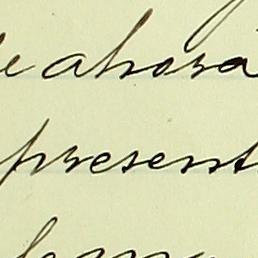 e ahora
present